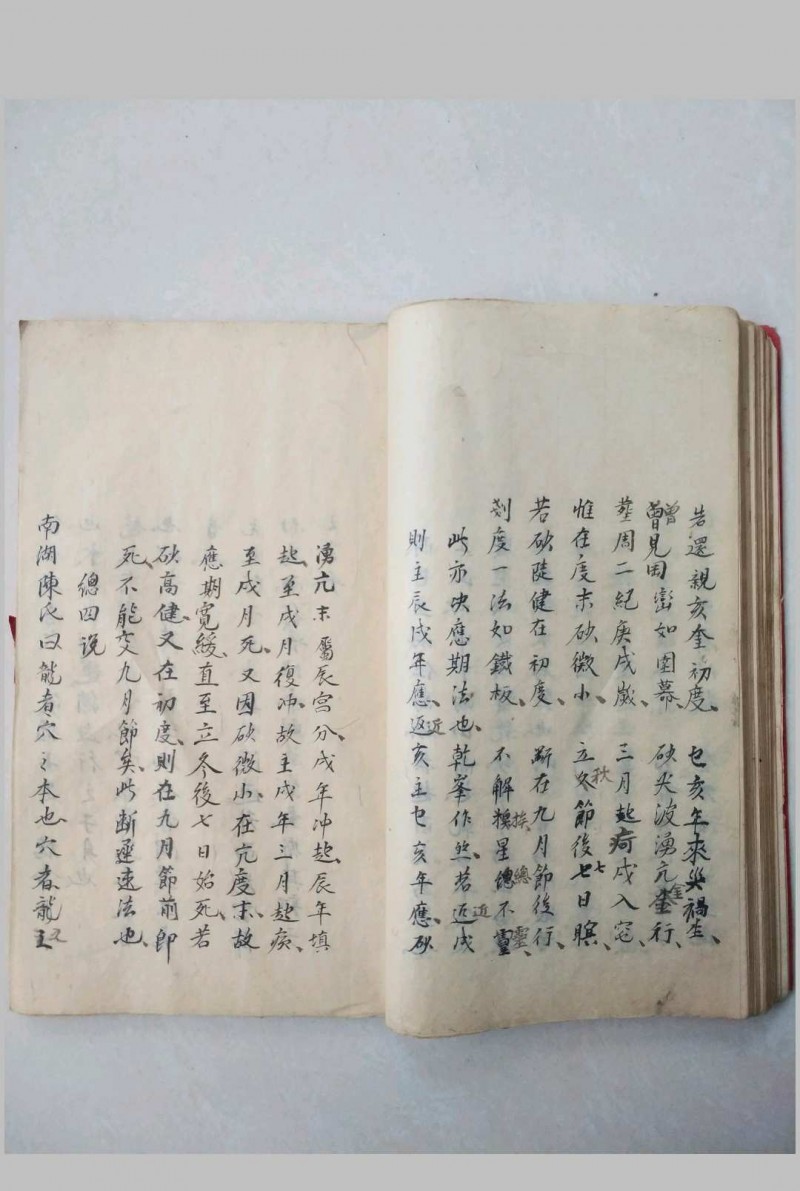 若還親亥奎初度、巳亥年來災禍生、
曾見田巒如圍幕、砂尖波湧亢金行、
塟周二紀庚戌嵗、三月起疴戌入宅、
惟在度末砂微小、立秋冬節後七日瞑、
若砂陡健在初度、斷在九月節後行、
刻度一法如鐵板、不解挨星總不靈、
此亦决應期法也、乾峯作煞、若近戌
則主辰戌年應、近亥主巳亥年應、砂
湧亢末屬辰宮分、戌年冲起、辰年填
起、至戌月復冲、故主戌年三月起疾、
至戌月死、又因砂微小、在亢度末、故
應期寛緩、直至立冬後七日始死、若
砂高健、又在初度、則在九月節前即
死、不能交九月節矣、此斷遲速法也、
總四説
南湖陳氏曰龍者穴之本也、穴者龍之主